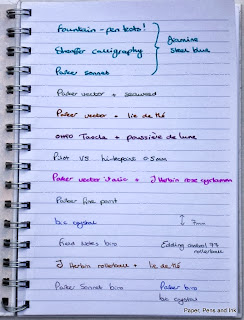 Fountain-pen
Sheaffer calligraphy
Diamine
Steel blue
Parker sonnet
Parker vector + seaweed
Parker vector + lie de thé
OHTO Tasche + poussière de lune
Pilot V5 hi-tecpoint 0.5mm
Parker vector italic + J Herbin rose cyclamen
Parker fine point
bic crystal
7mm
Field Notes biro
Edding
rollerball
J Herbin rollerball + lie de thé
Parker Sonnet biro
Parker biro
bic crystal
Paper, Pens and Ink